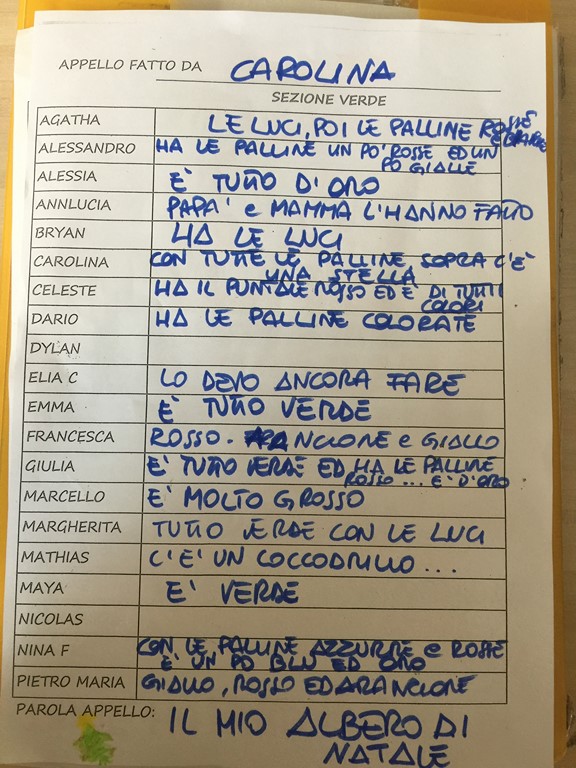 APPELLO FATTO DA CAROLINA
SEZIONE VERDE
AGATHA LE LUCI, POI LE PALLINE ROSSE
E GRANDI
ALESSANDRO HA LE PALLINE UN PO' ROSSE ED UN
PO GIALLE
ALESSIA E' TUTTO D'ORO
ANNLUCIA PAPA' e MAMMA L'HANNO FATTO
BRYAN HA LE LUCI
CAROLINA CON TUTTE LE PALLINE, SOPRA C'E'
UNA STELLA
CELESTE HA IL PUNTALE ROSSO ED E' DI TUTTI
COLORI
DARIO HA LE PALLINE COLORATE
DYLAN
ELIA C LO DEVO ANCORA FARE
EMMA E' TUTTO VERDE
FRANCESCA ROSSO. ARANCIONE e GIALLO
GIULIA E' TUTTO VERDE ED HA LE PALLINE
ROSSO ... E' D'ORO
MARCELLO E' MOLTO GROSSO
MARGHERITA TUTTO VERDE CON LE LUCI
MATHIAS C'E' UN COCCODRILLO ...
MAYA E' VERDE
NICOLAS
NINA F CON LE PALLINE AZZURRE e ROSSE
E' UN PO BLU ED ORO
PIETRO MARIA GIALLO, ROSSO ED ARANCIONE
PAROLA APPELLO: IL MIO ALBERO DI
NATALE